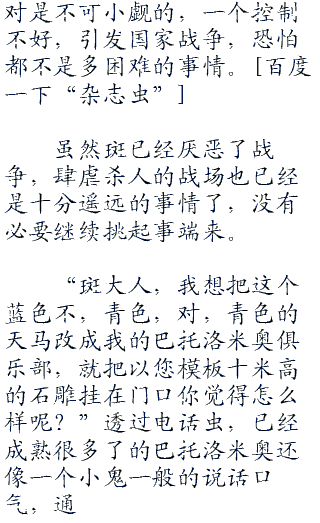 对是不可小觑的，一个控制
不好，引发国家战争，恐怕
都不是多困难的事情。[百度
一下“杂志虫”]
虽然斑已经厌恶了战
争，肆虐杀人的战场也已经
是十分遥远的事情了，没有
必要继续挑起事端来。
“斑大人，我想把这个
蓝色不，青色，对，青色的
天马改成我的巴托洛米奥俱
乐部，就把以您模板十米高
的石雕挂在门口你觉得怎么
样呢？”透过电话虫，已经
成熟很多了的巴托洛米奥还
像一个小鬼一般的说话口
气，通